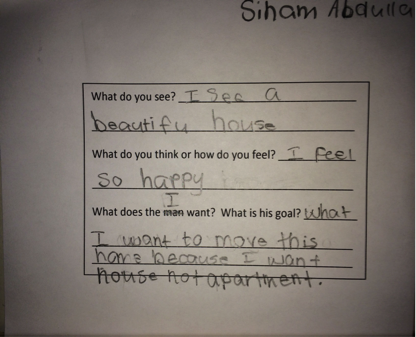 Siham Abdulla
What do you see? I See a
beautifu house
What do you think or how do you feel? I feel
so happy
I
What does the man want? What is his goal? what
I want to move this
home because I want
house not apartment.